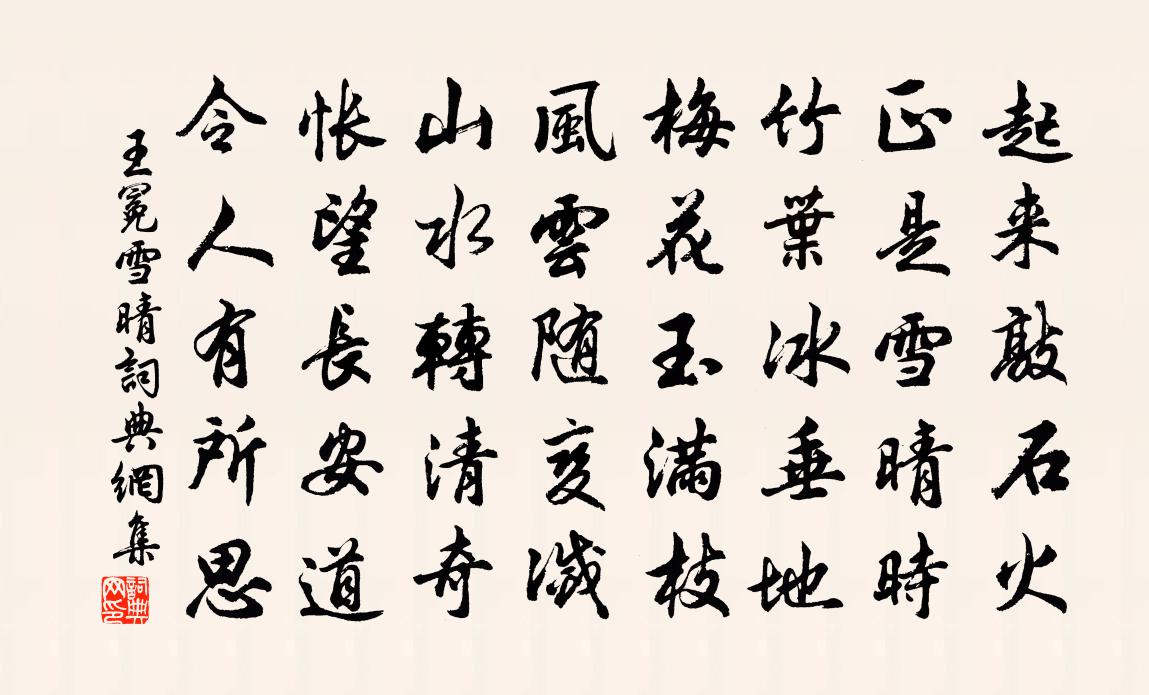 起来敲石火
正是雪晴時
竹葉冰垂地
梅花玉满枝
風雲随变滅
山水轉清奇
怅望長安道
令人有所思
王冕雪晴詞典網集
詞典网印